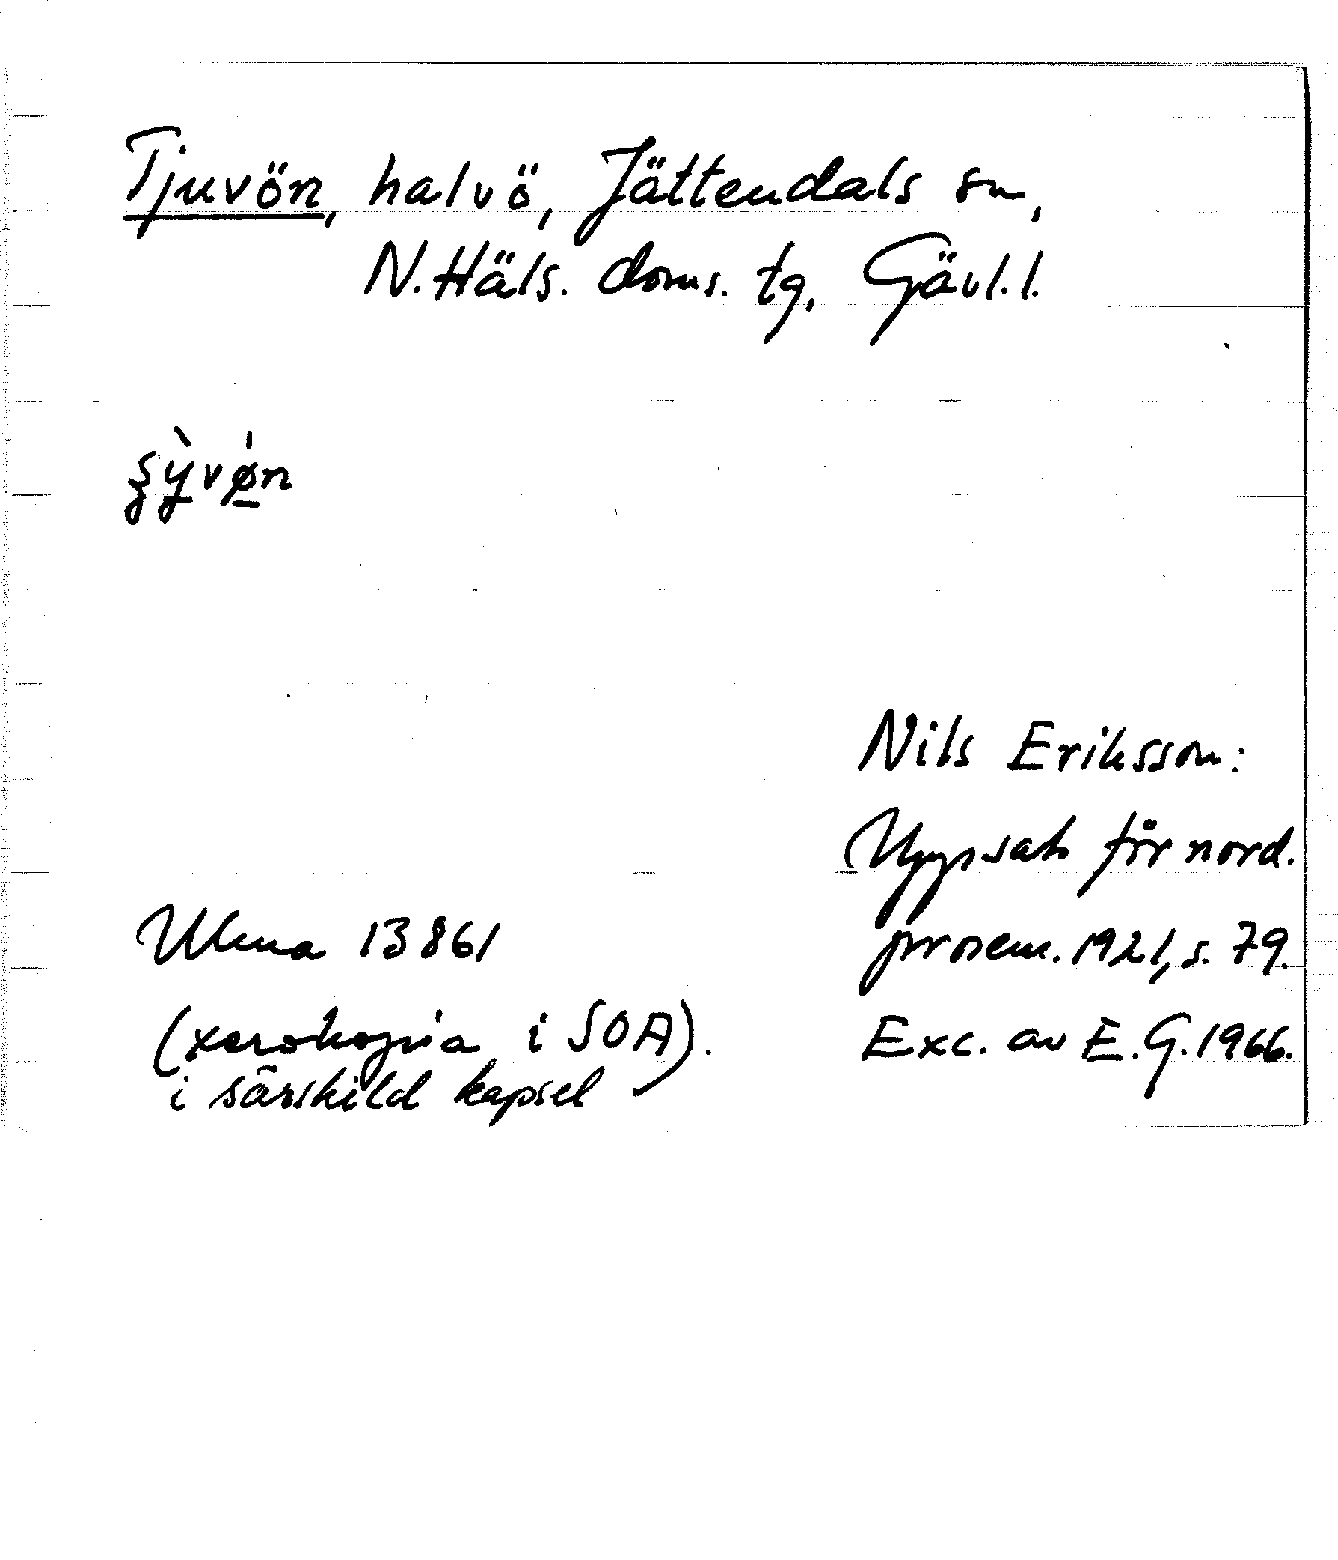 Tjuvön, halvö, Jättendals sn,
N. Häls. doms. tg, Gävl. l.
ʂỳ̠vǿ̠n
Nils Eriksson:
Uppsats för nord.
prosem. 1921, s. 79.
Exc. av E. G. 1966.
Ulma 13861
(xerokopia i SOA).
i särskild kapsel